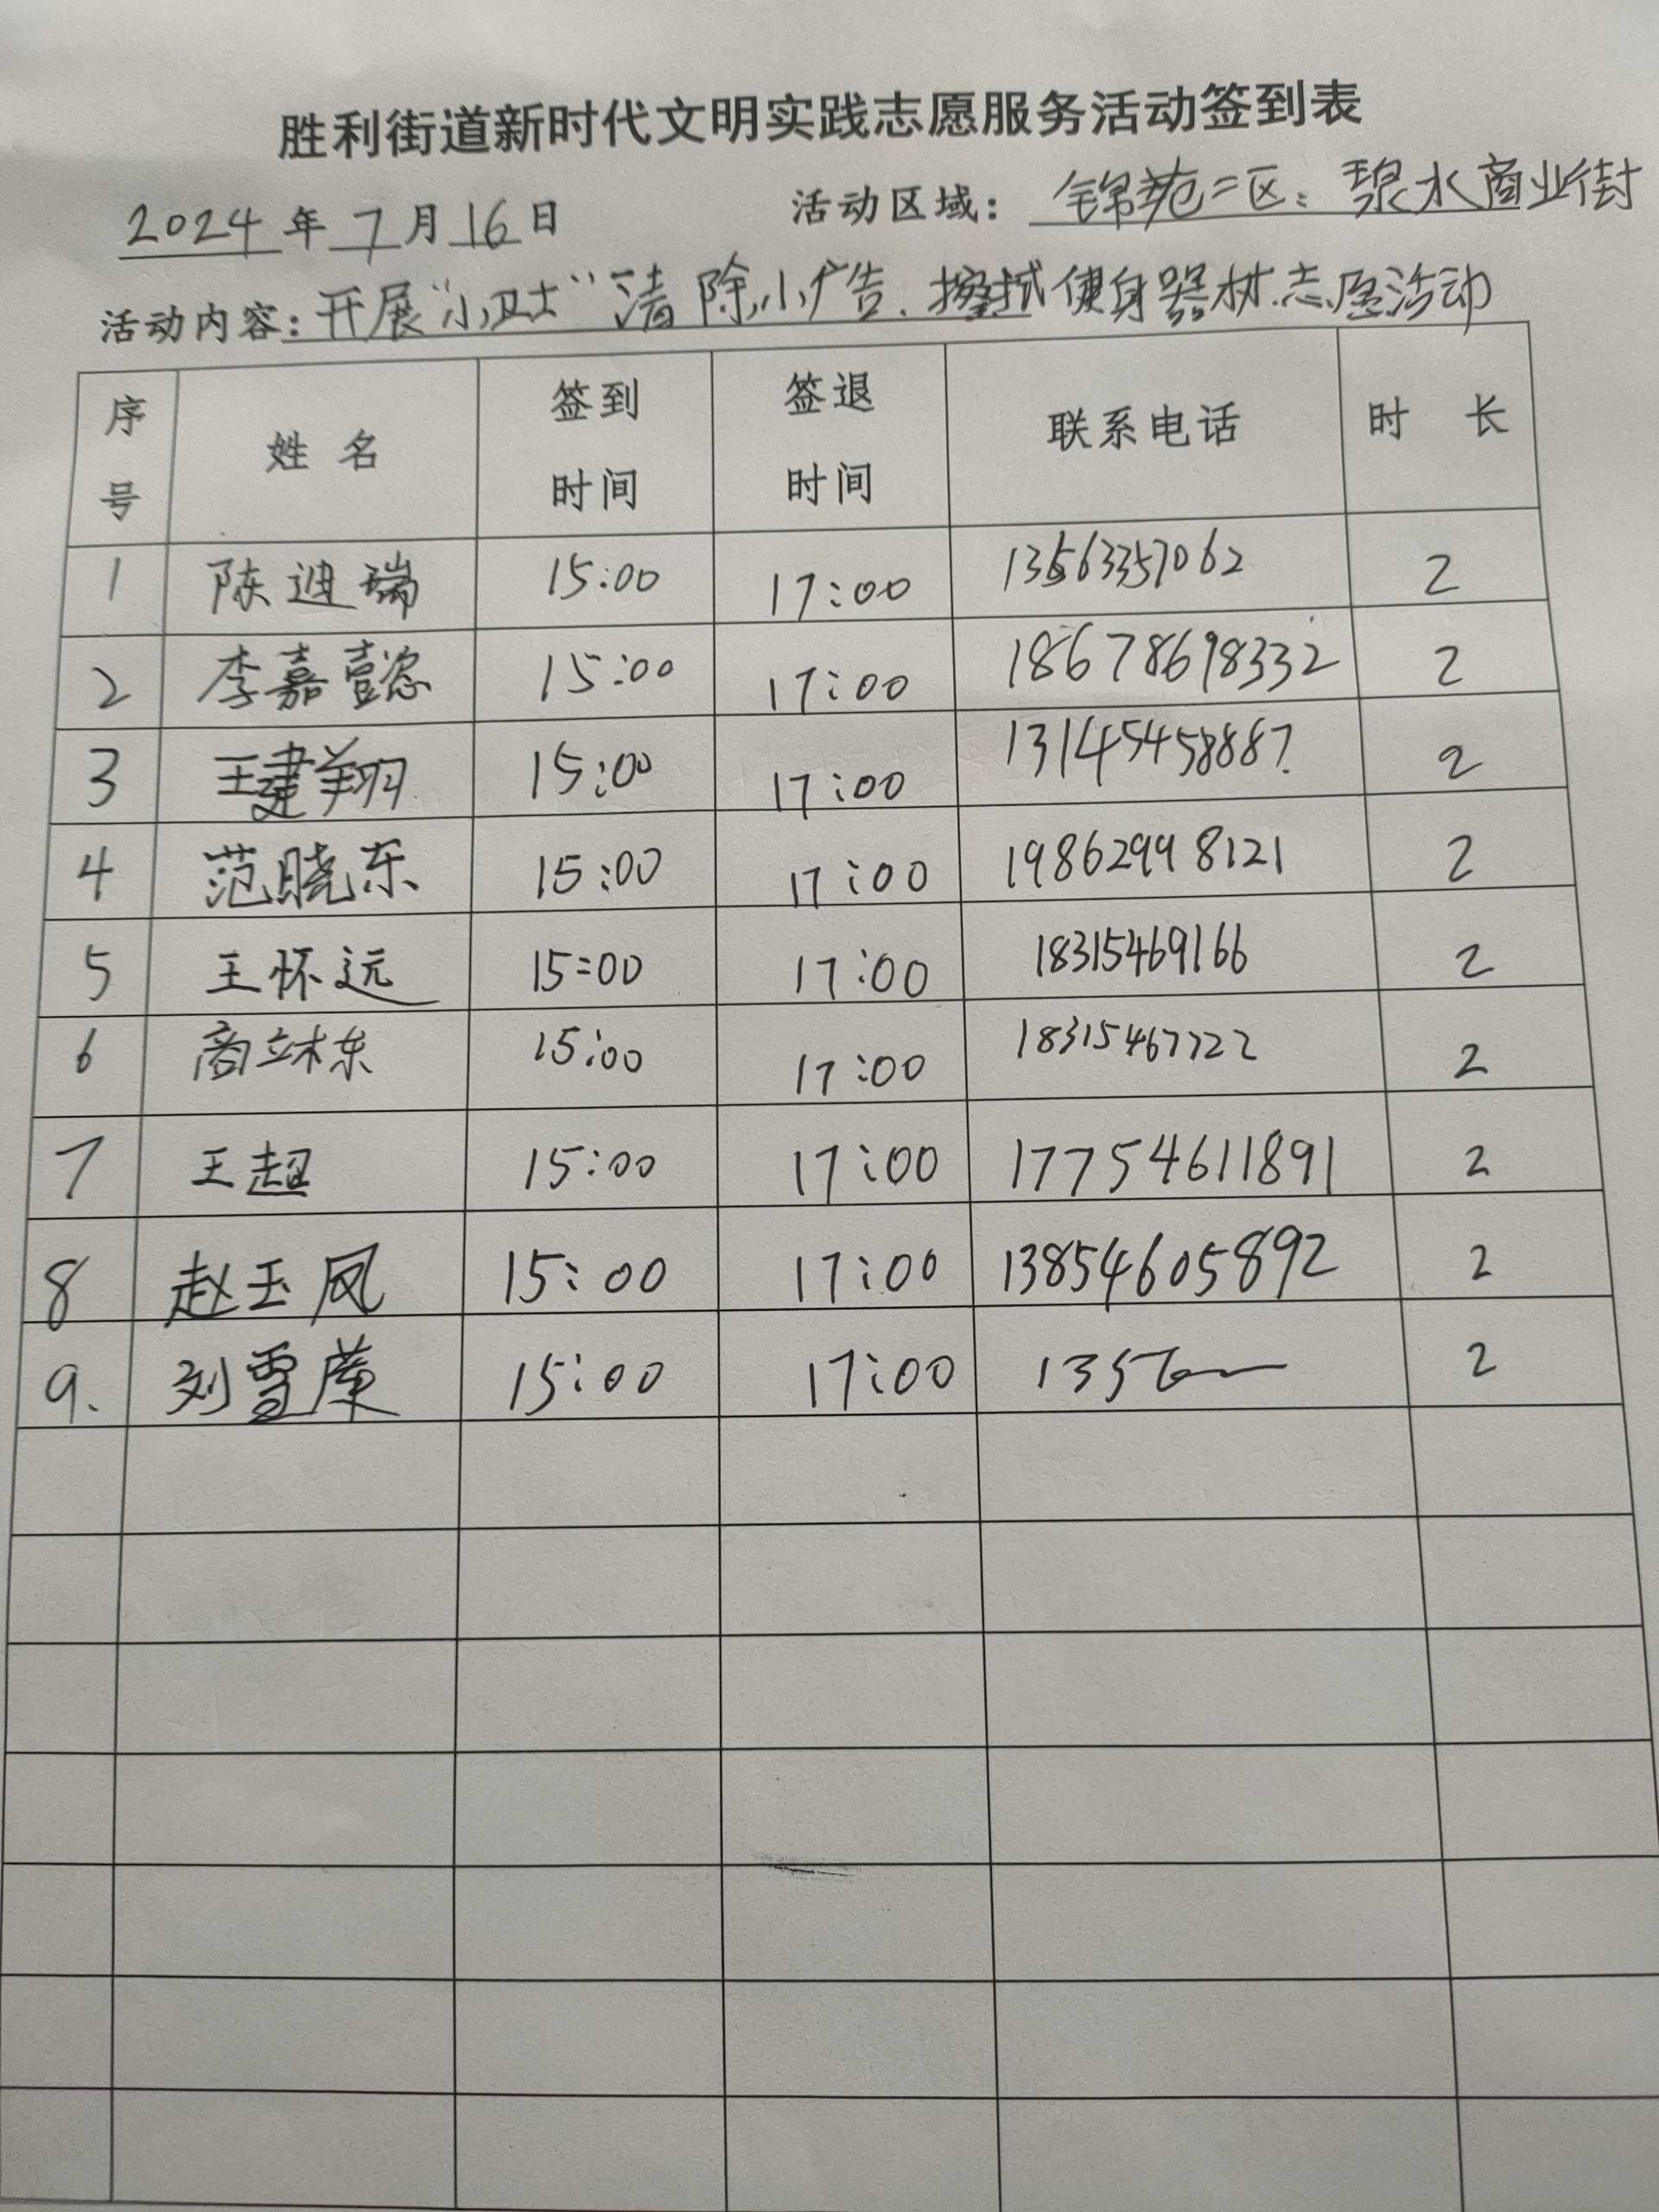 胜利街道新时代文明实践志愿服务活动签到表
2024年7月16日 活动区域：锦苑二区、碧水商业街
活动内容：开展“小卫士”清除小广告、擦拭健身器材志愿活动
序号 姓名 签到时间 签退时间 联系电话 时长
1 陈迪瑞 15:00 17:00 13563357062 2
2 李嘉懿 15:00 17:00 18678698332 2
3 王建翔 15:00 17:00 13145458887 2
4 范晓东 15:00 17:00 19862998121 2
5 王怀远 15:00 17:00 18315469166 2
6 商立东 15:00 17:00 18315467722 2
7 王超 15:00 17:00 17754611891 2
8 赵玉凤 15:00 17:00 13854605892 2
9. 刘雪 15:00 17:00 2